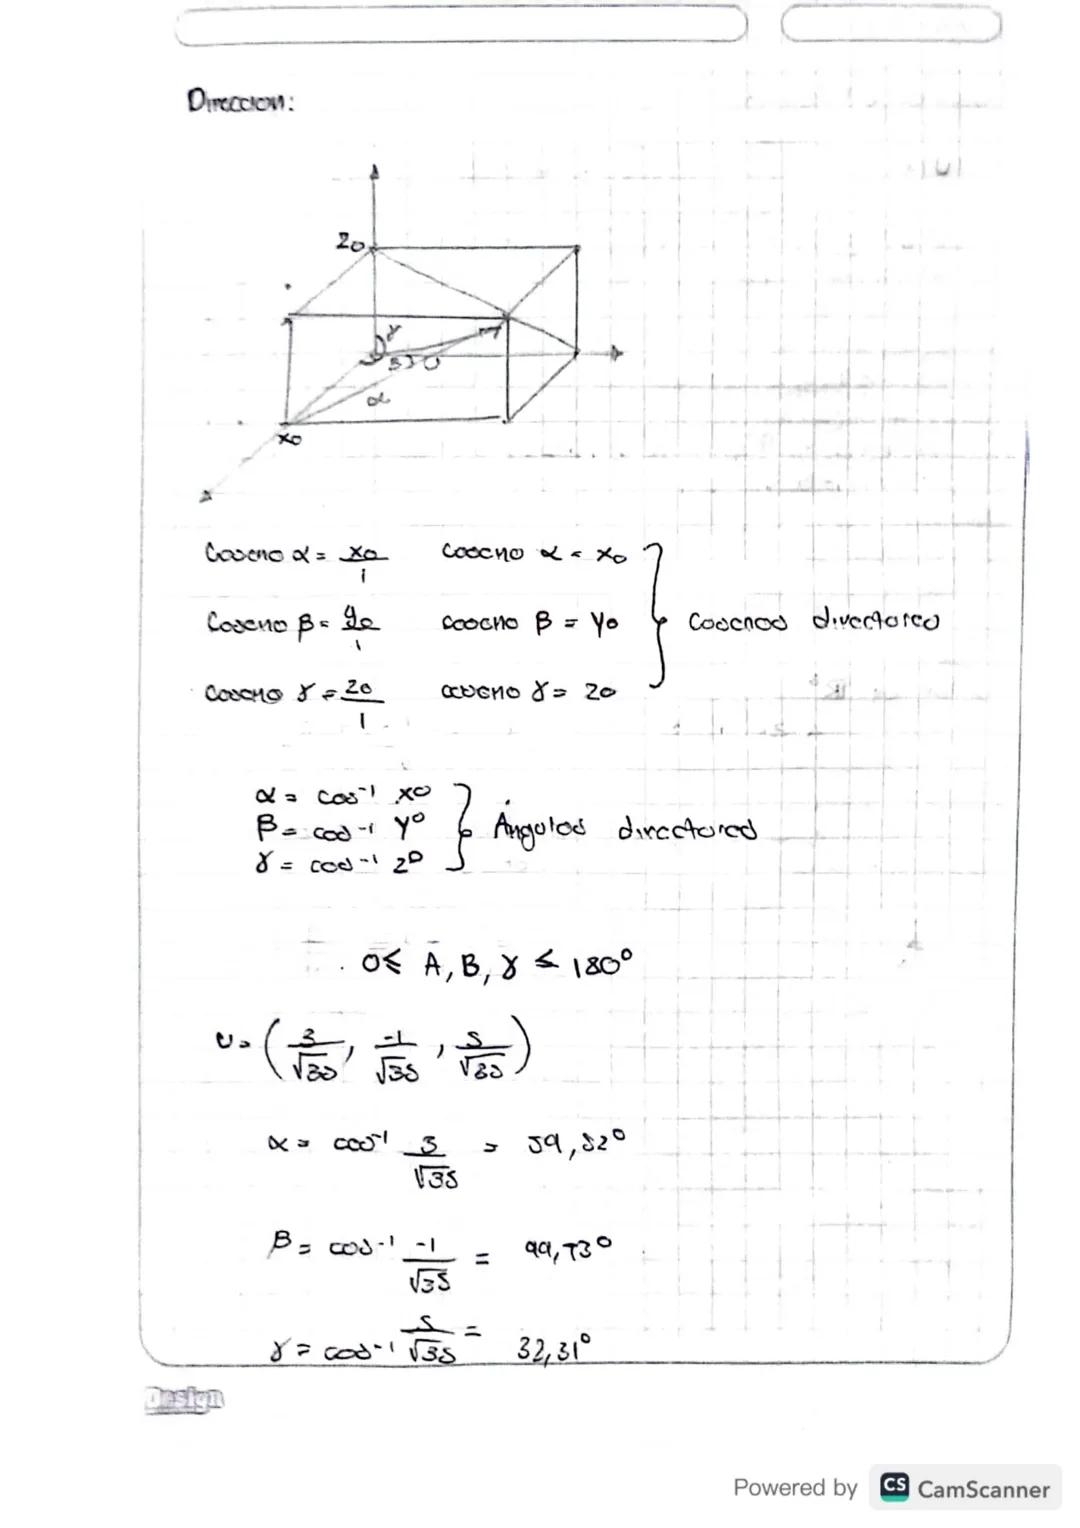 Direccion:
z0
γ
β
U
α
x0
Coseno α = x0/1 coseno α = x0
Coseno β = y0/1 coseno β = y0 } Cosenos directores
Coseno γ = z0/1 coseno γ = z0
α = cos⁻¹ x0
β = cos⁻¹ y0 } Ángulos directores
γ = cos⁻¹ z0
0≤ A, B, γ ≤ 180°
U = (3/√35, -1/√35, 5/√35)
α = cos⁻¹ 3/√35 = 59,52°
β = cos⁻¹ -1/√35 = 99,73°
γ = cos⁻¹ 5/√35 = 32,31°
Design
Powered by CS CamScanner